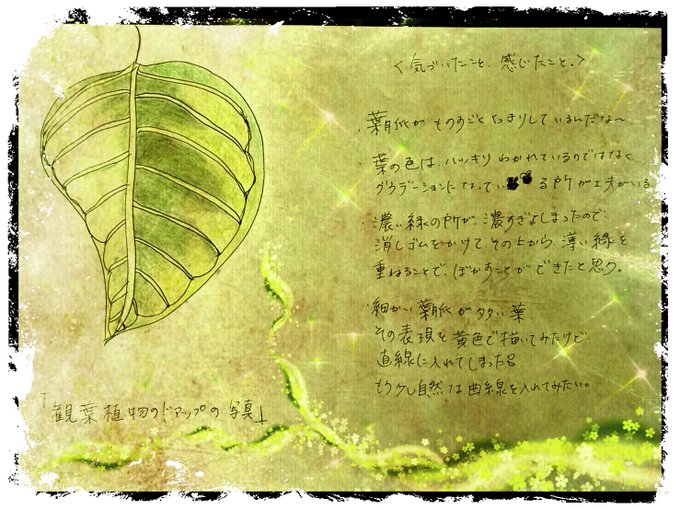 〈気づいたこと、感じたこと。〉
・葉脈が ものすごく はっきりしているんだな〜
・葉の色は、ハッキリ わかれているのではなく
グラデーションになってい る所が工夫がいる。
・濃い緑の所が、濃すぎてしまったので、
消しゴムをかけて、その上から、薄い緑を
重ねることで、ぼかすことが できたと思う。
・細かい 葉脈が多い葉、
その表現を 黄色で描いてみたけど
直線に入れてしまった。
もう少し自然な曲線を入れてみたい。
「観葉植物のドアップの写真」